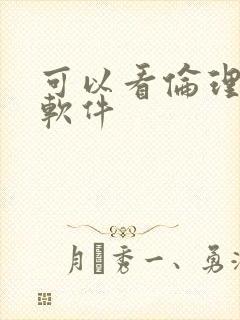 可以看倫理
軟件
月秀一、勇